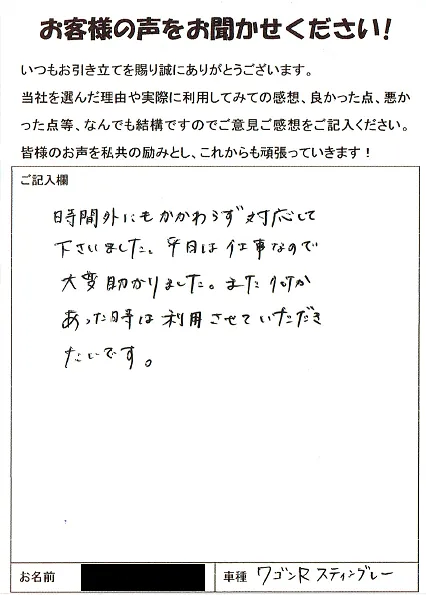 お客様の声をお聞かせください!
いつもお引き立てを賜り誠にありがとうございます。
当社を選んだ理由や実際に利用してみての感想、良かった点、悪か
った点等、なんでも結構ですのでご意見ご感想をご記入ください。
皆様のお声を私共の励みとし、これからも頑張っていきます!
ご記入欄
時間外にもかかわらず対応して
下さいました。平日は仕事なので
大変助かりました。また何か
あった時は利用させていただき
たいです。
お名前
車種 ワゴンR スティングレー